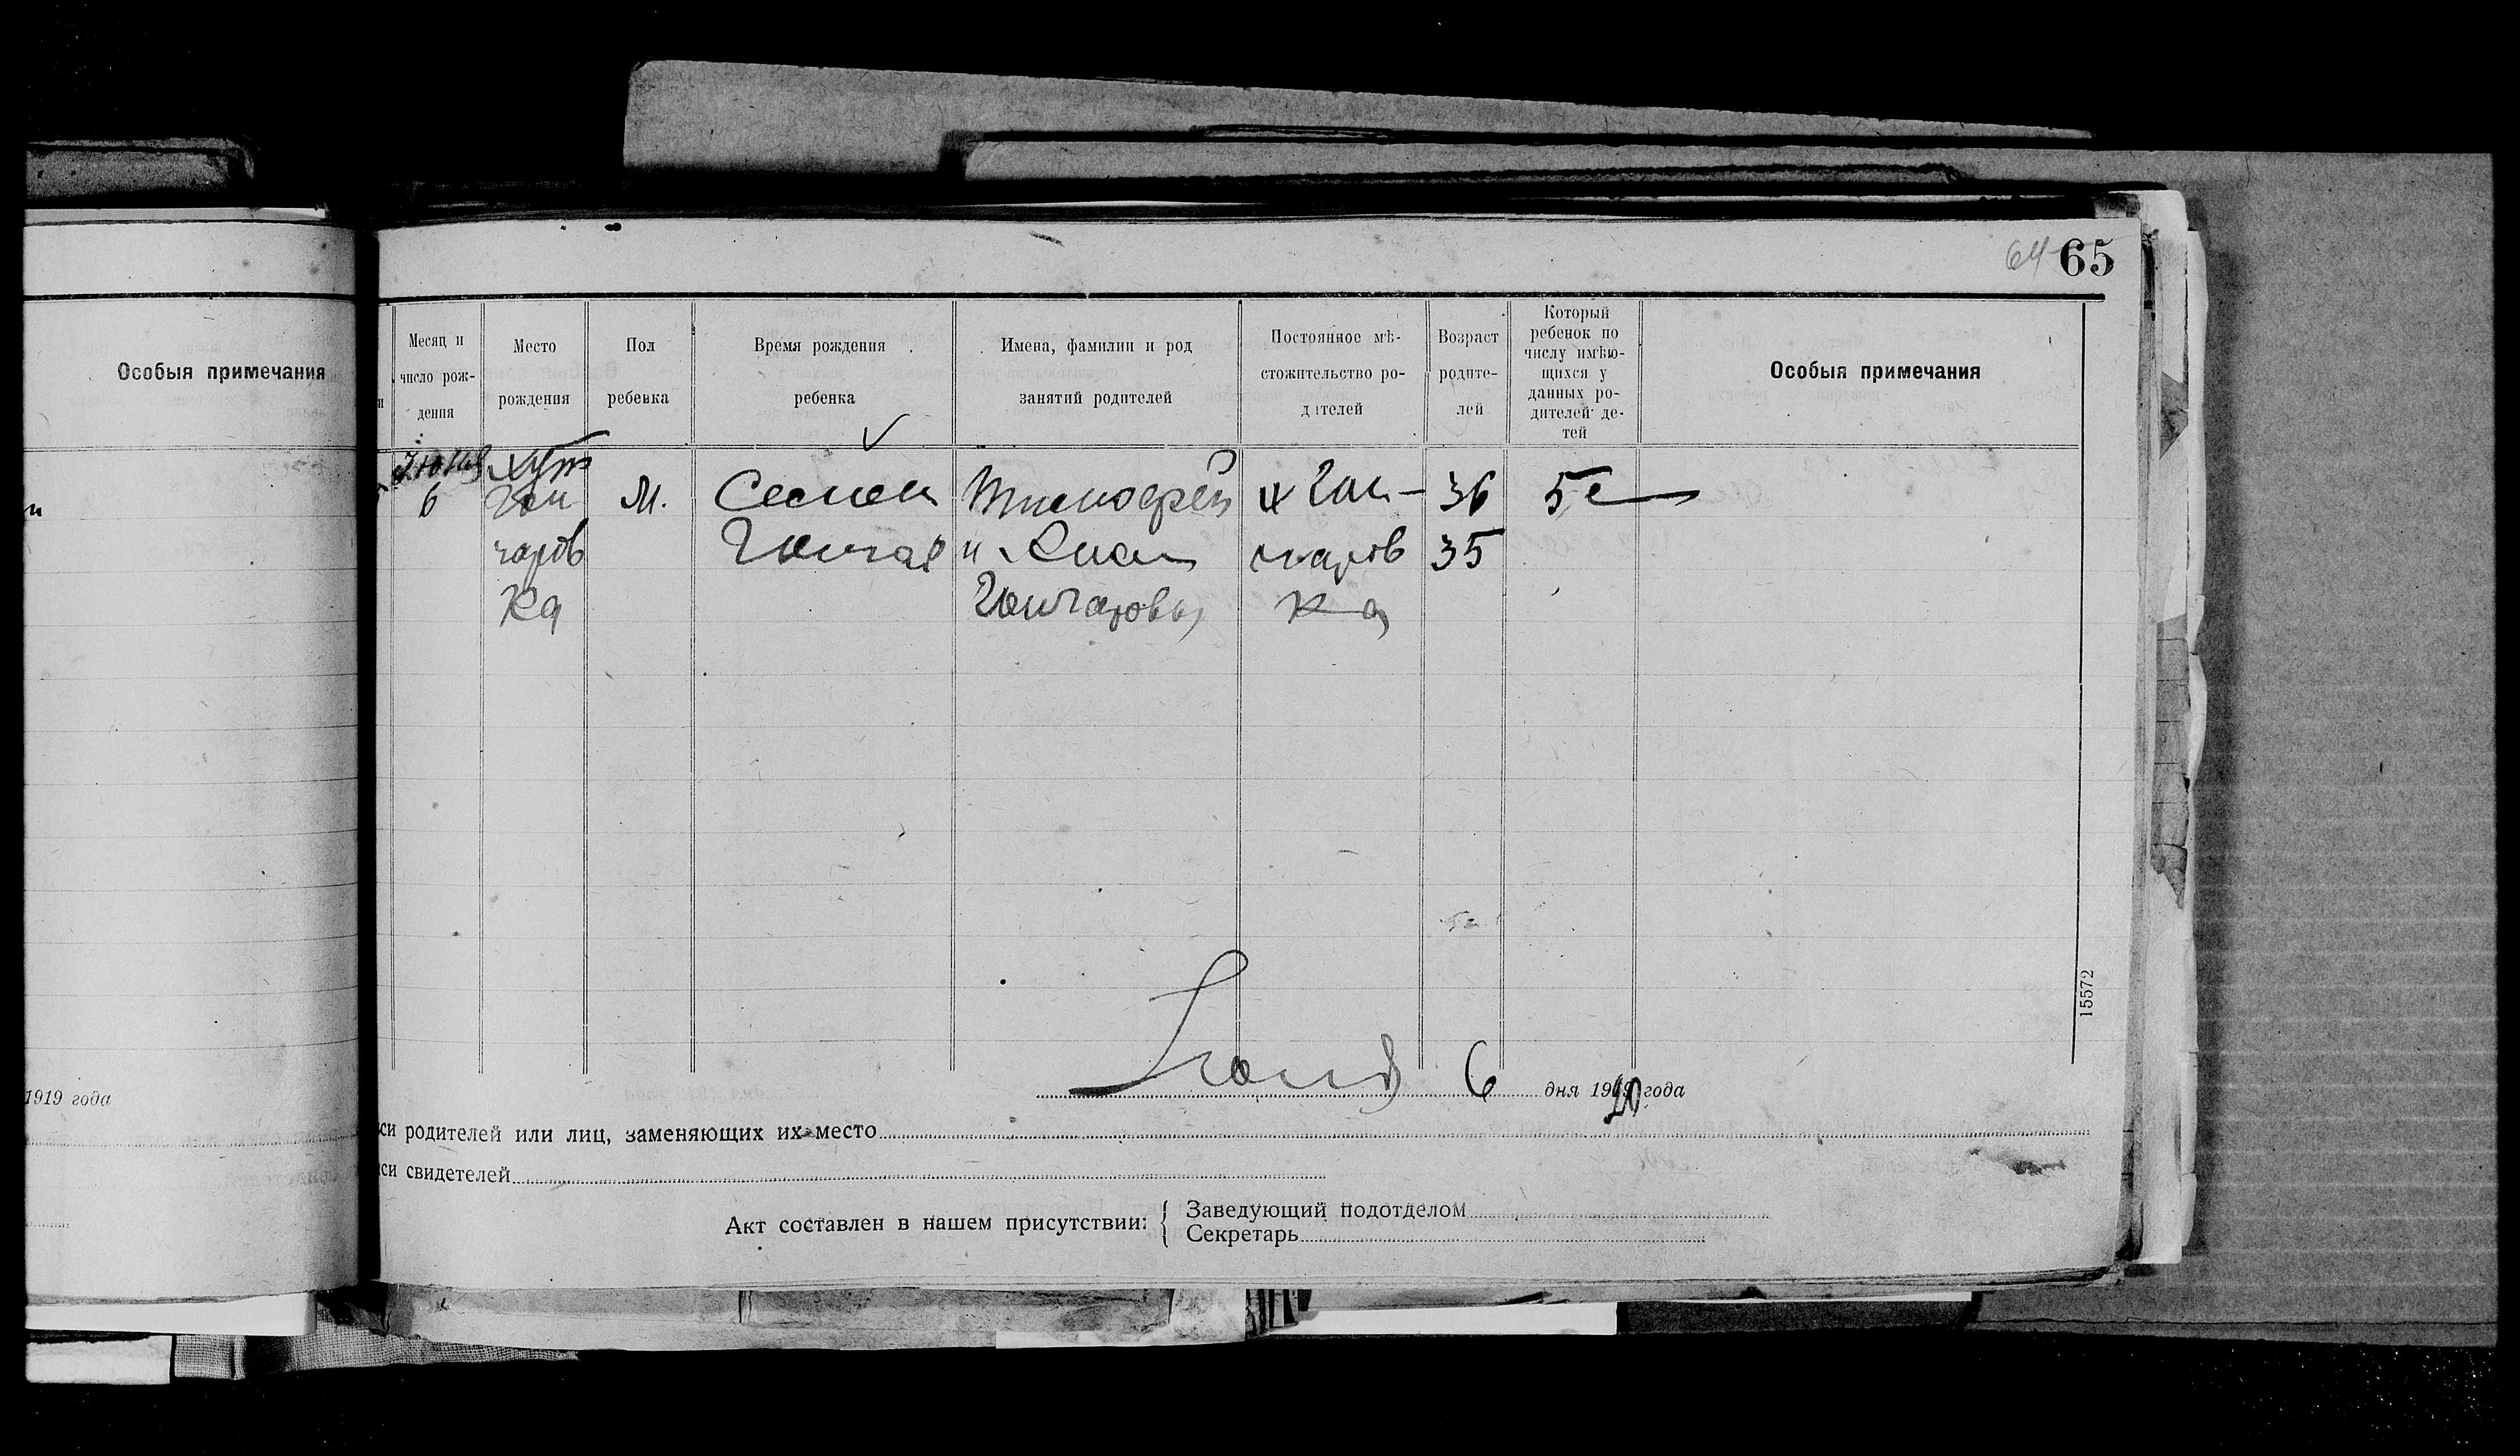 64 65
Особыя примечания
Месяц и число рож-дения
Место рождения
Пол ребенка
Время рождения ребенка
Имена, фамилии и род занятий родителей
Постоянное мѣ-стожительство ро-дителей
Возраст родите-лей
Который ребенок по числу имѣю-щихся у данных ро-дителей де-тей
Особыя примечания
Июня хут
6 Гон М. Семен Тимофей х Гон- 36 5й
чаров Гончар и Анна чаров 35
ка Гончаровы ка
15572
Июня 6 дня 1920 года
1919 года
си родителей или лиц, заменяющих их место
си свидетелей
Акт составлен в нашем присутствии:
Заведующий подотделом
Секретарь